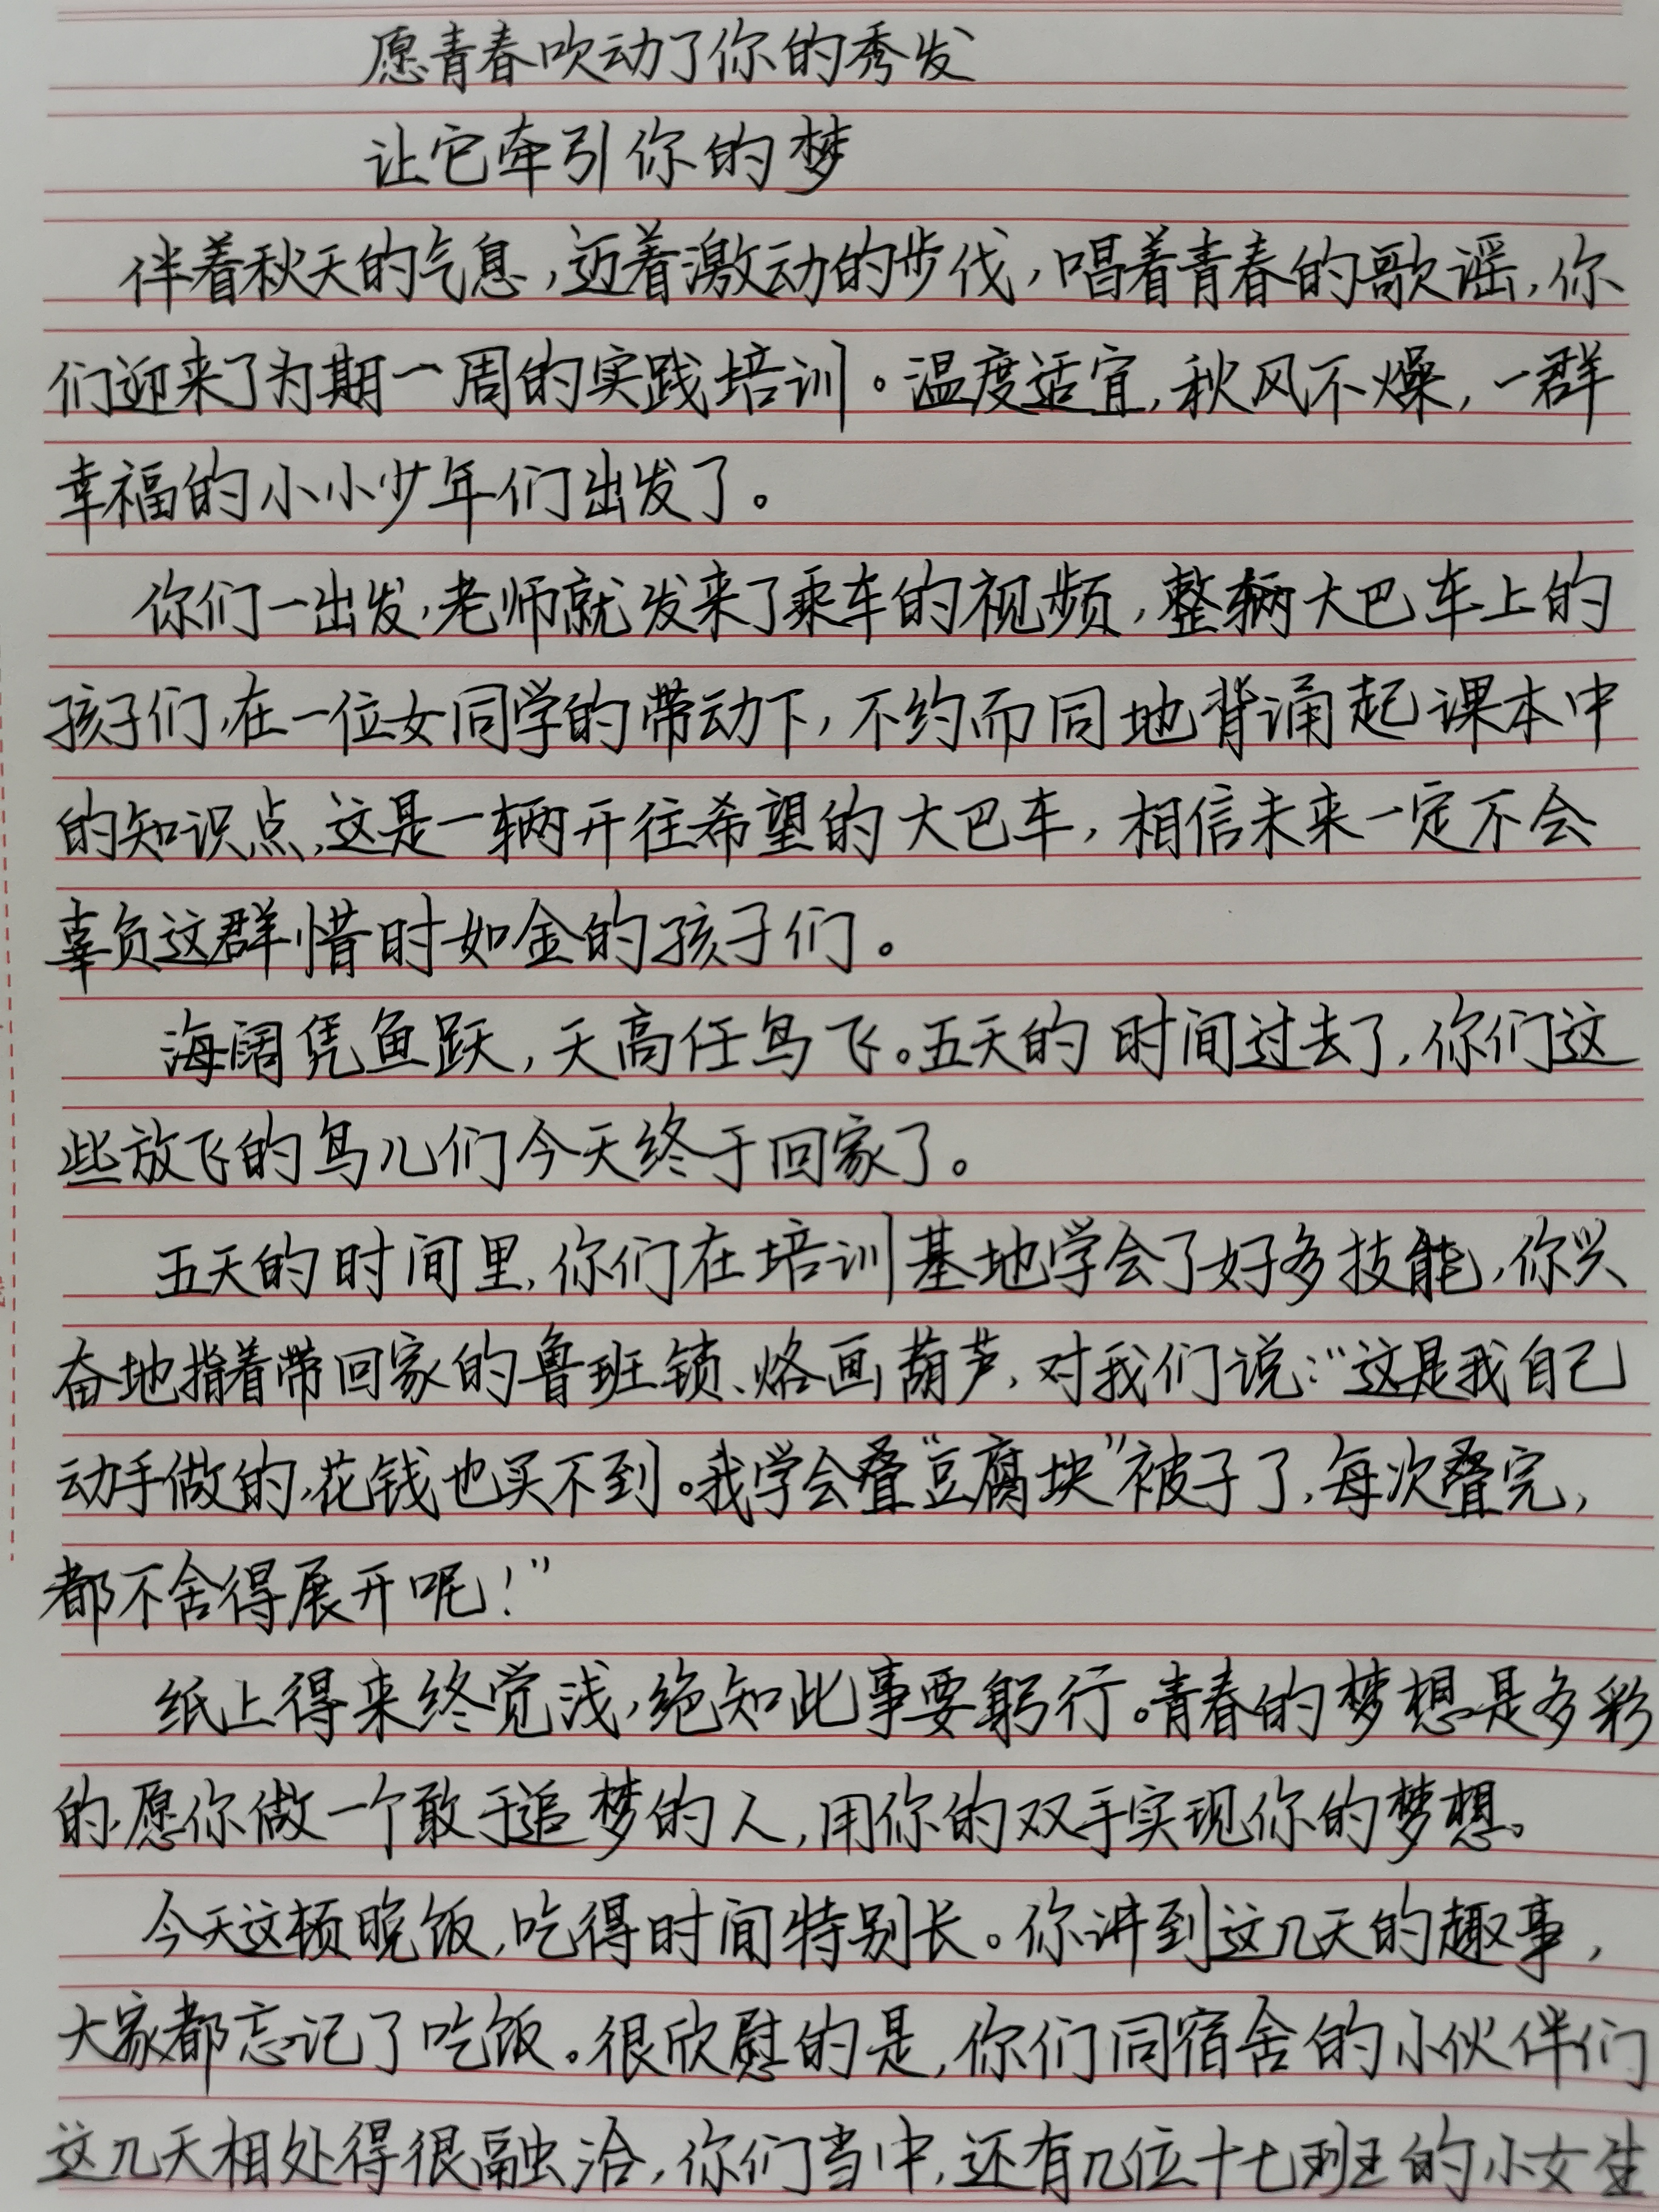 愿青春吹动了你的秀发
让它牵引你的梦
伴着秋天的气息,迈着激动的步伐,唱着青春的歌谣,你
们迎来了为期一周的实践培训。温度适宜,秋风不燥,一群
幸福的小小少年们出发了。
你们一出发,老师就发来了乘车的视频,整辆大巴车上的
孩子们,在一位女同学的带动下,不约而同地背诵起课本中
的知识点,这是一辆开往希望的大巴车,相信未来一定不会
辜负这群惜时如金的孩子们。
海阔凭鱼跃,天高任鸟飞。五天的时间过去了,你们这
些放飞的鸟儿们今天终于回家了。
五天的时间里,你们在培训基地学会了好多技能,你兴
奋地指着带回家的鲁班锁、烙画葫芦,对我们说:“这是我自己
动手做的,花钱也买不到。我学会叠“豆腐块”被子了,每次叠完,
都不舍得展开呢!”
纸上得来终觉浅,绝知此事要躬行。青春的梦想是多彩
的,愿你做一个敢于追梦的人,用你的双手实现你的梦想。
今天这顿晚饭,吃得时间特别长。你讲到这几天的趣事,
大家都忘记了吃饭。很欣慰的是,你们同宿舍的小伙伴们
这几天相处得很融洽,你们当中,还有几位十七班的小女生